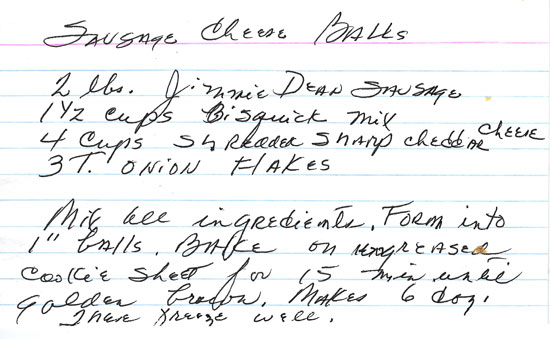 Sausage Cheese Balls
2 lbs. Jimmie Dean Sausage
1 1/2 cups Bisquick mix
4 cups shredded sharp cheddar cheese
3 T. onion flakes
Mix all ingredients. Form into
1" balls. Bake on ungreased
cookie sheet for 15 min until
golden brown. Makes 6 doz.
These freeze well.